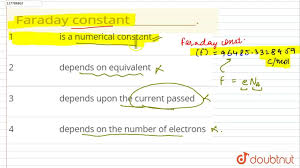 Faraday constant
1 is a numerical constant
2 depends on equivalent ×
3 depends upon the current passed ×
4 depends on the number of electrons ×.
Faraday const.
(f) = 96485.3328959
C/mol
f = eNA
doubtnut